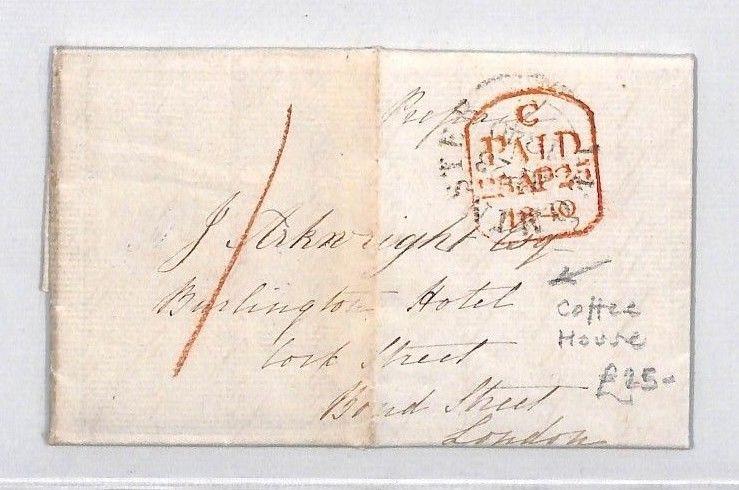 C
PAID
1840
J Arkwright Esq
Burlington Hotel
Cork Street
Bond Street
London
Coffee
House
£25-